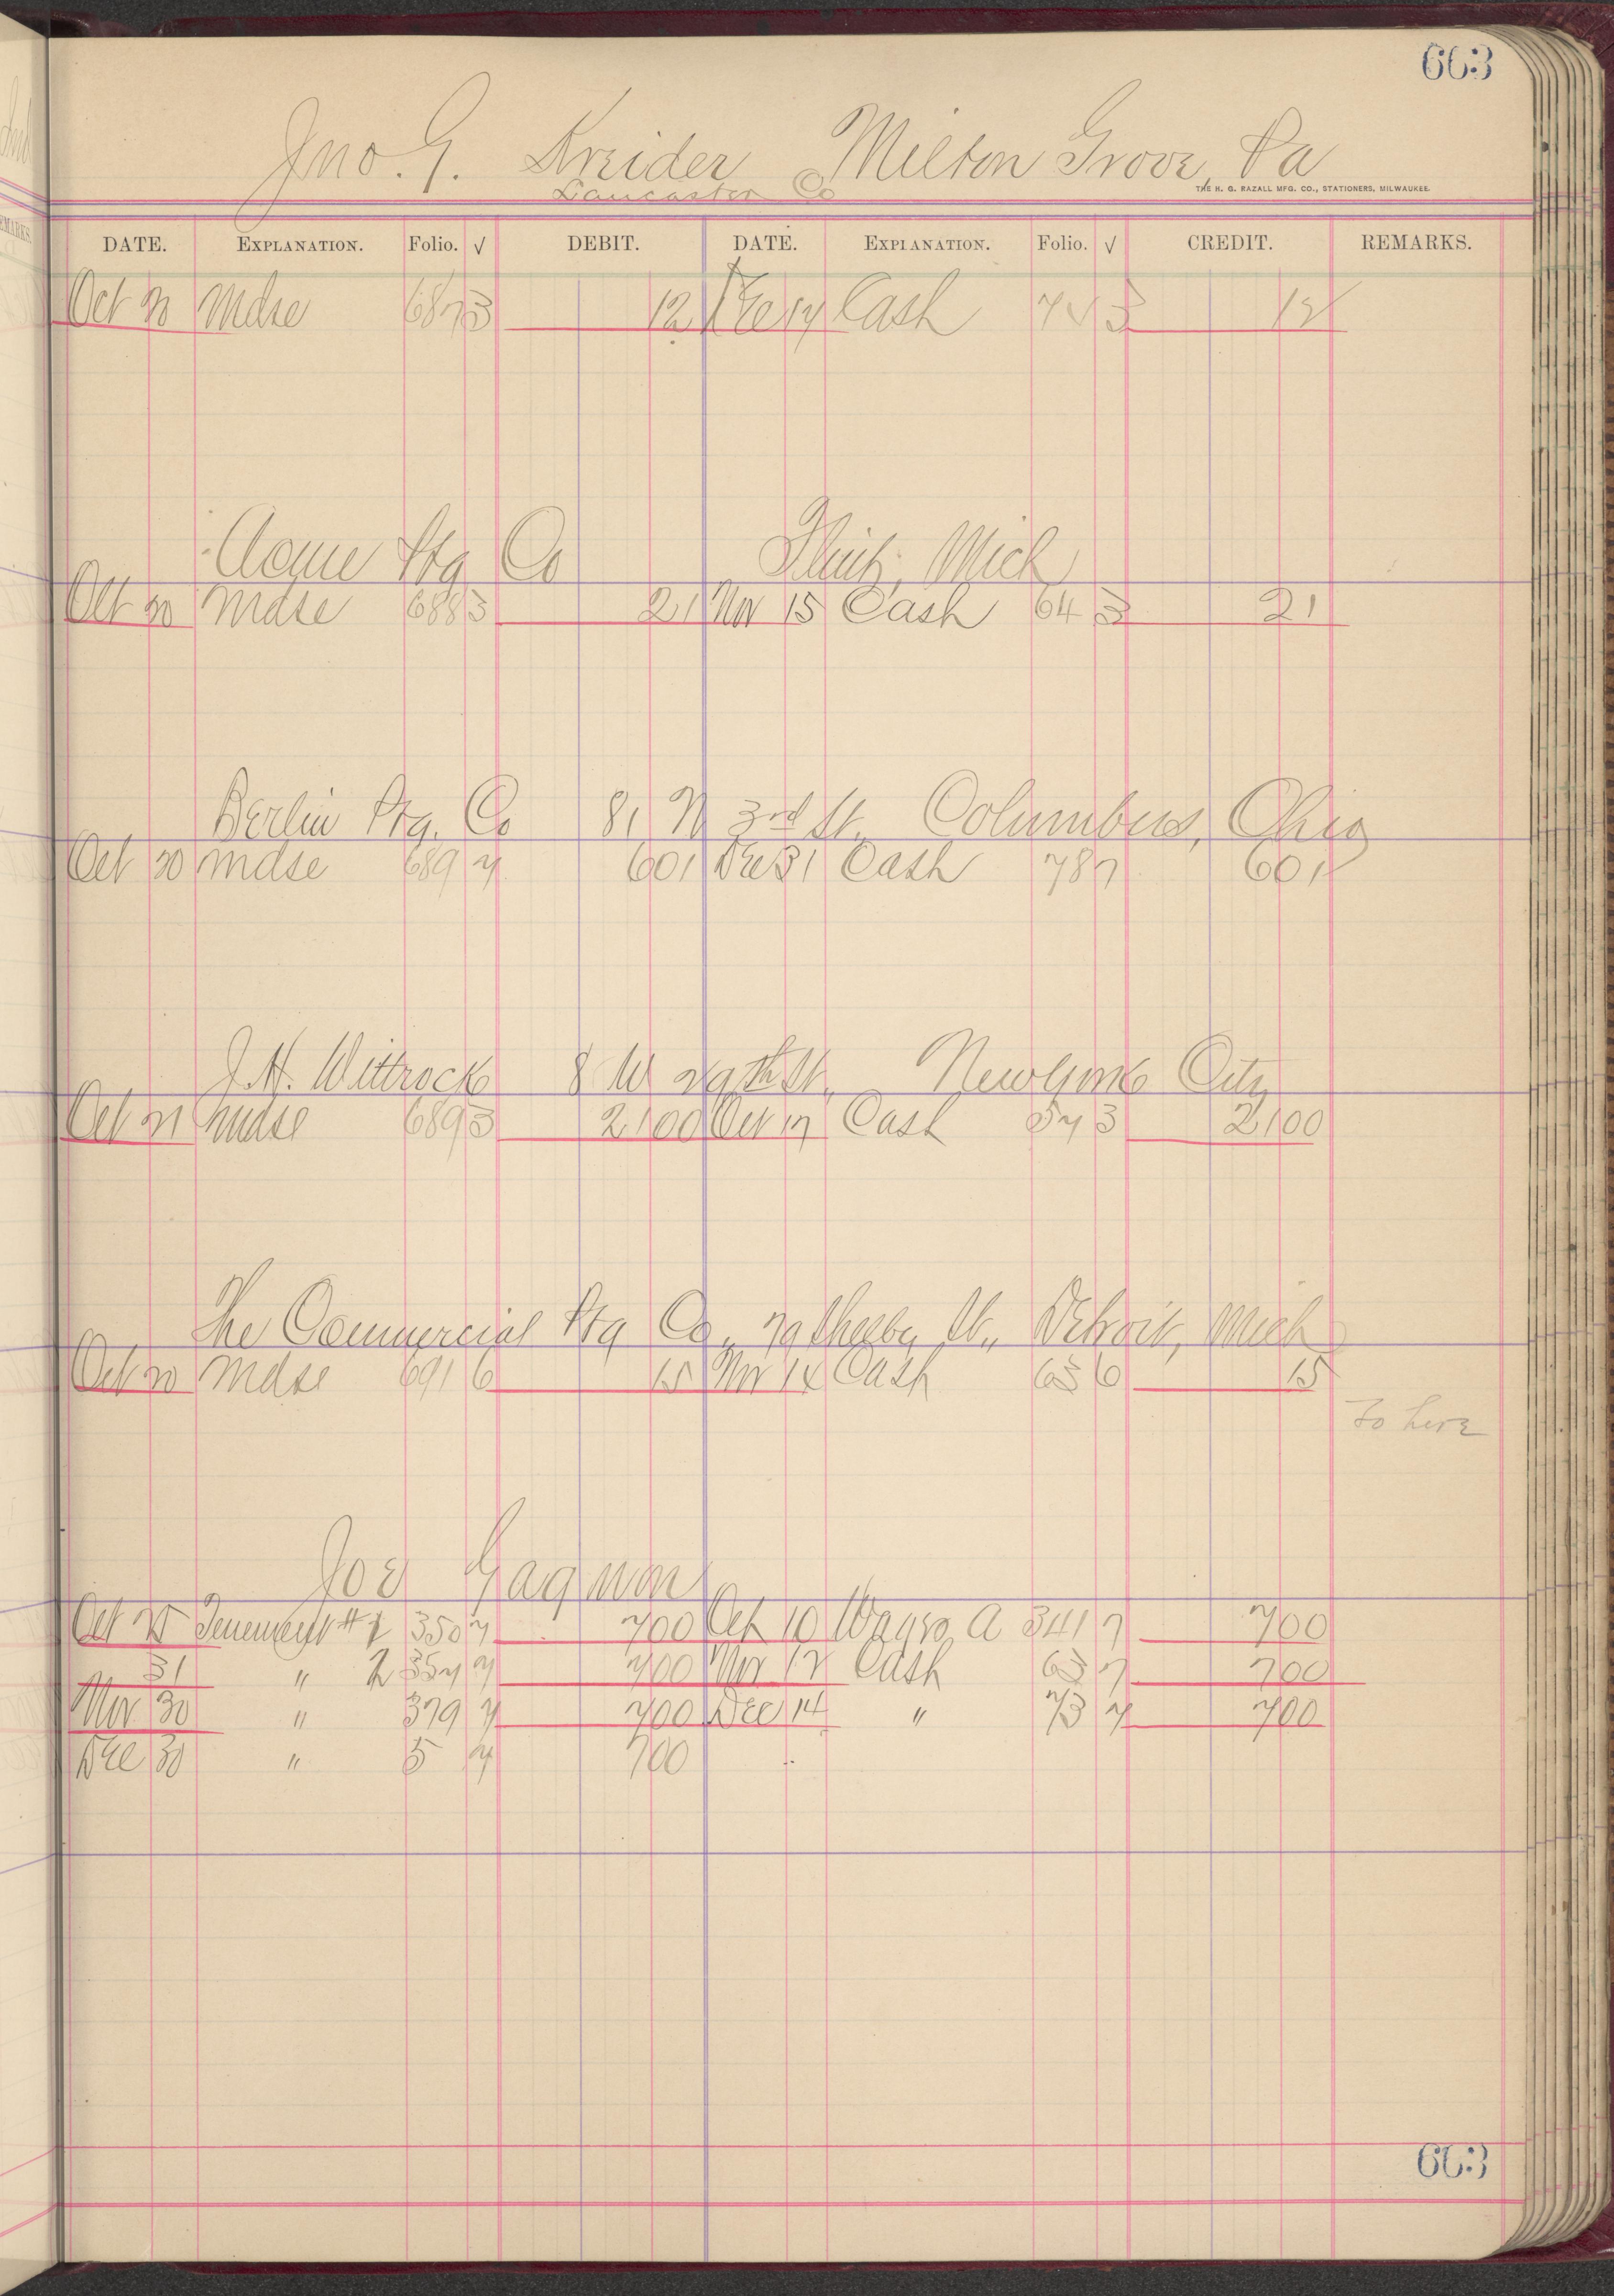 663
Jno. G. Kreider Milton Grove, Pa
Lancaster Co
THE H. G. RAZALL MFG. CO., STATIONERS, MILWAUKEE.
DATE. EXPLANATION. Folio. √ DEBIT. DATE. EXPLANATION. Folio. √ CREDIT. REMARKS.
Oct 20 Mdse 687 3 12 Dec 14 Cash 74 3 12
Acme Ptg Co Flint, Mich
Oct 20 Mdse 688 3 21 Nov 15 Cash 64 3 21
Berlin Ptg. Co 81 N 3rd St. Columbus, Ohio
Oct 20 Mdse 689 7 601 Dec 31 Cash 78 7 601
J. H. Wittrock 8 W 29th St., New York City
Oct 21 Mdse 689 3 2100 Oct 17 Cash 57 3 2100
The Commercial Ptg Co., 79 Shelby St., Detroit, Mich
Oct 20 Mdse 691 6 15 Nov 14 Cash 63 6 15
To here
Joe Gagnon
Oct 25 Tenement # 2 350 7 700 Oct 10 Wages A 341 7 700
31 " 2 357 7 700 Nov 12 Cash 63 7 700
Nov 30 " 379 7 700 Dec 14 " 73 7 700
Dec 30 " 5 7 700
663